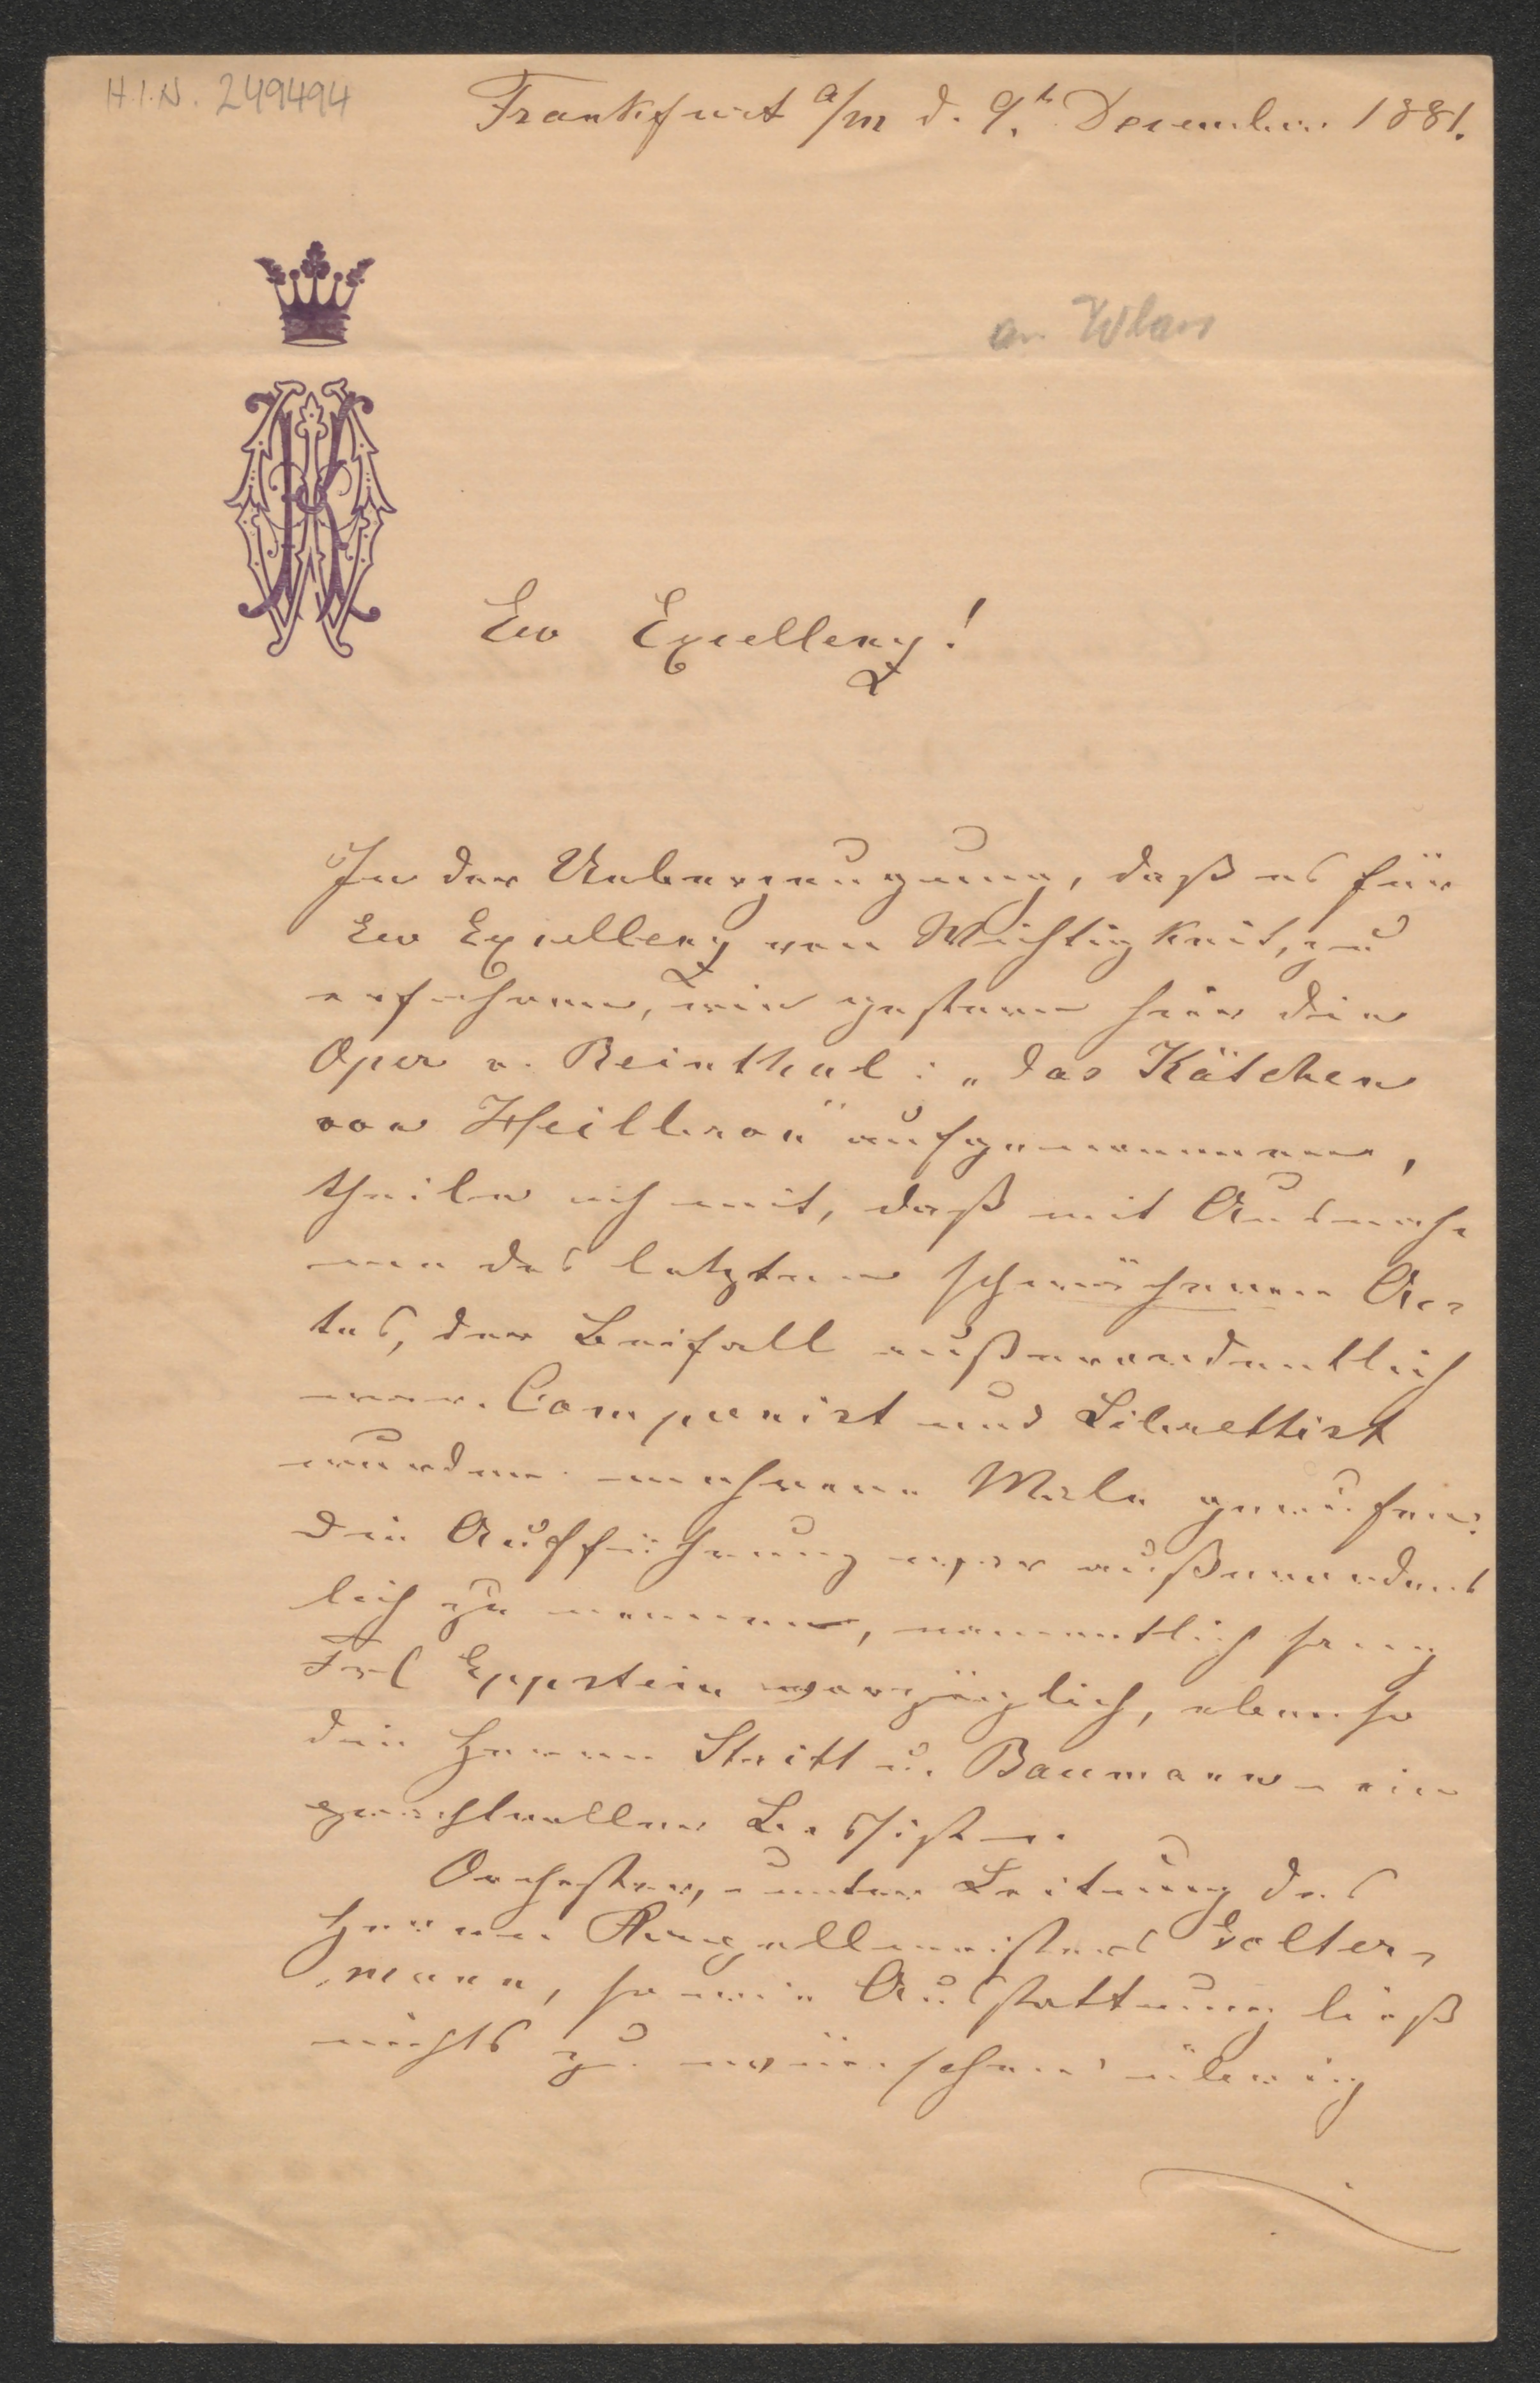 H.I.N. 249494
Frankfurt a/m d. 9.t December 1881.
an
Ew Excellenz!
In der Ueberzeugung, daß es für
Ew Excellenz von Wichtigkeit, zu
erfahren, wie gestern hier die
Oper v. Reinthal: „das Kätchen
von Heilbron" aufgenommen,
theile ich mit, daß mit Ausnah-
me des letzten schwächeren Ac-
tes, der Beifall außerordentlich
war. Componist und Librettist
wurden mehrere Male gerufen.
Die Aufführung war außerordent
lich zu nennen, namentlich sang
Frl Eppstein vorzüglich, ebenso
die Herren Stritt u. Baumann - ein
prachtvoller Bassist -.
Orchester, unter Leitung des
Herrn Kapellmeisters Golter-
mann, sowie Ausstattung ließ
nichts zu wünschen übrig